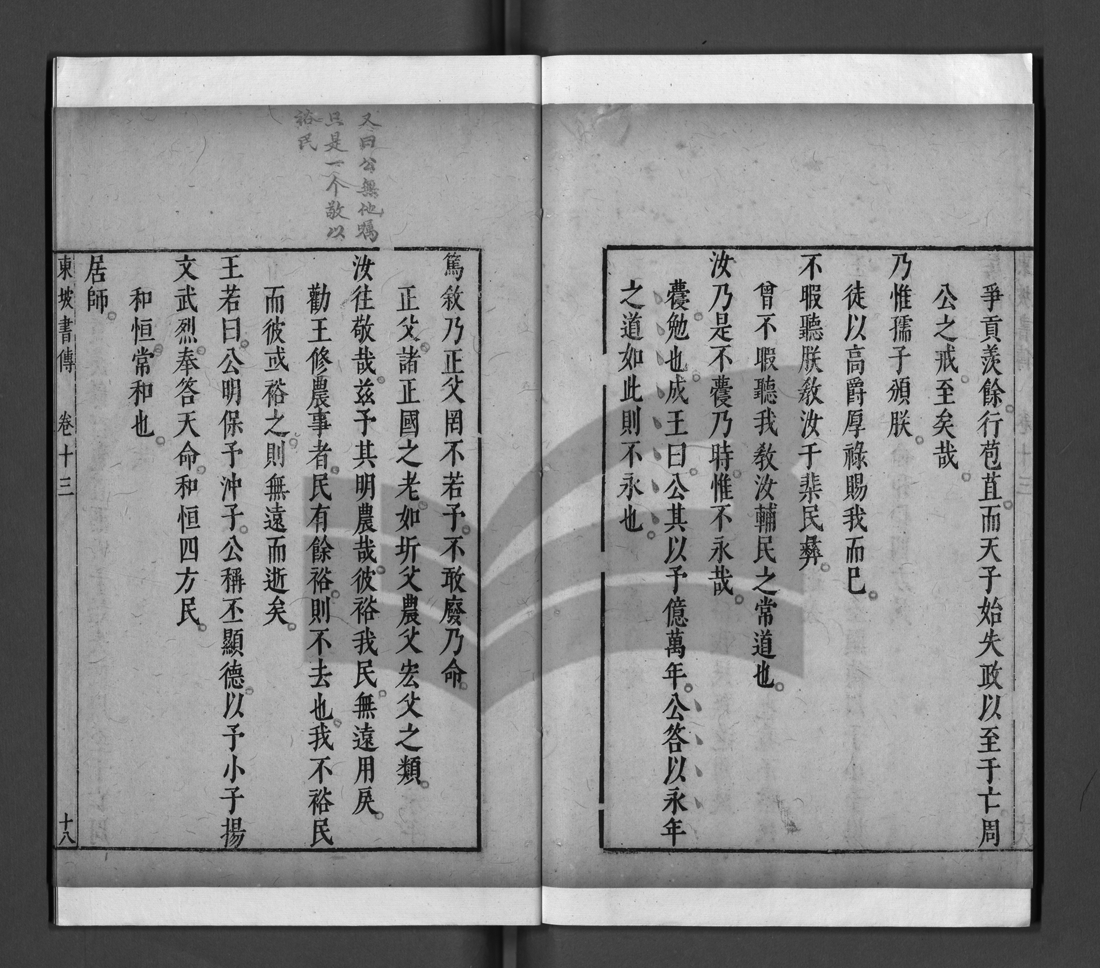 爭貢羨餘行苞苴而天子始失政以至于亡周
公之戒至矣哉
乃惟孺子頒朕
徒以高爵厚祿賜我而已
不暇聽朕敎汝于棐民彝
曾不暇聽我敎汝輔民之常道也
汝乃是不蘉乃時惟不永哉
蘉勉也成王曰公其以予億萬年公答以永年
之道如此則不永也
又曰公無他囑
只是一个敬以
裕民
篤敘乃正父罔不若予不敢廢乃命
正父諸正國之老如圻父農父宏父之類
汝往敬哉茲予其明農哉彼裕我民無遠用戾
勸王修農事者民有餘裕則不去也我不裕民
而彼或裕之則無遠而逝矣
王若曰公明保予沖子公稱丕顯德以予小子揚
文武烈奉答天命和恒四方民
和恒常和也
居師
東坡書傳 卷十三 十八